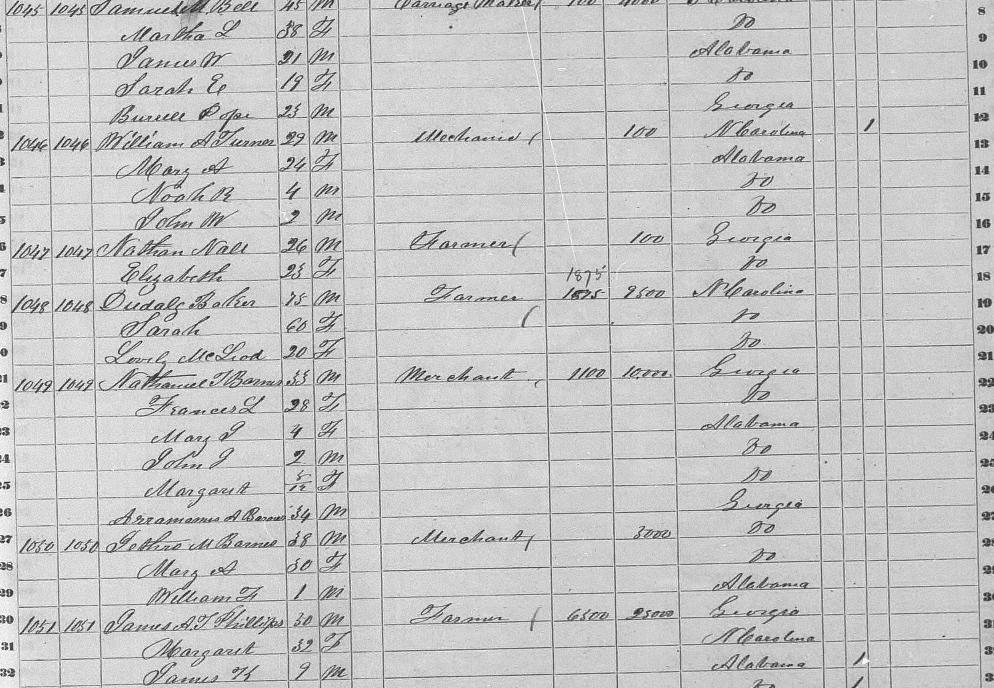 1045 1045 Samuel M Bell 45 M Carriage Maker 100
Martha L 38 F Do 8
James W 21 M Alabama 9
Sarah E 19 F Do 10
Burrell Pope 23 M Georgia 11
1046 1046 William A Turner 29 M Mechanic 100 N Carolina 1 12
Mary A 24 F Alabama 13
Noah R 4 M Do 14
John W 2 M Do 15
1047 1047 Nathan Nall 26 M Farmer 100 Georgia 16
Elizabeth 23 F Do 17
1875
1048 1048 Baker 75 M Farmer 1875 9500 N Carolina 18
Sarah 60 F Do 19
Lovely McLeod 20 F Do 20
21 1049 1049 Nathaniel T Barnes 33 M Merchant 1100 10000 Georgia 21
22 Frances L 28 F Do 22
23 Mary J 4 F Alabama 23
24 John J 2 M Do 24
25 Margaret 5/12 F Do 25
26 A Barnes 34 M Georgia 26
27 1050 1050 Jethro M Barnes 38 M Merchant 3000 Do 27
28 Mary A 30 F Do 28
29 William F 1 M Alabama 29
30 1051 1051 James A T Phillips 30 M Farmer 6500 25000 Georgia
31 Margaret 32 F N Carolina
32 James K 9 M Alabama 1
Do 1